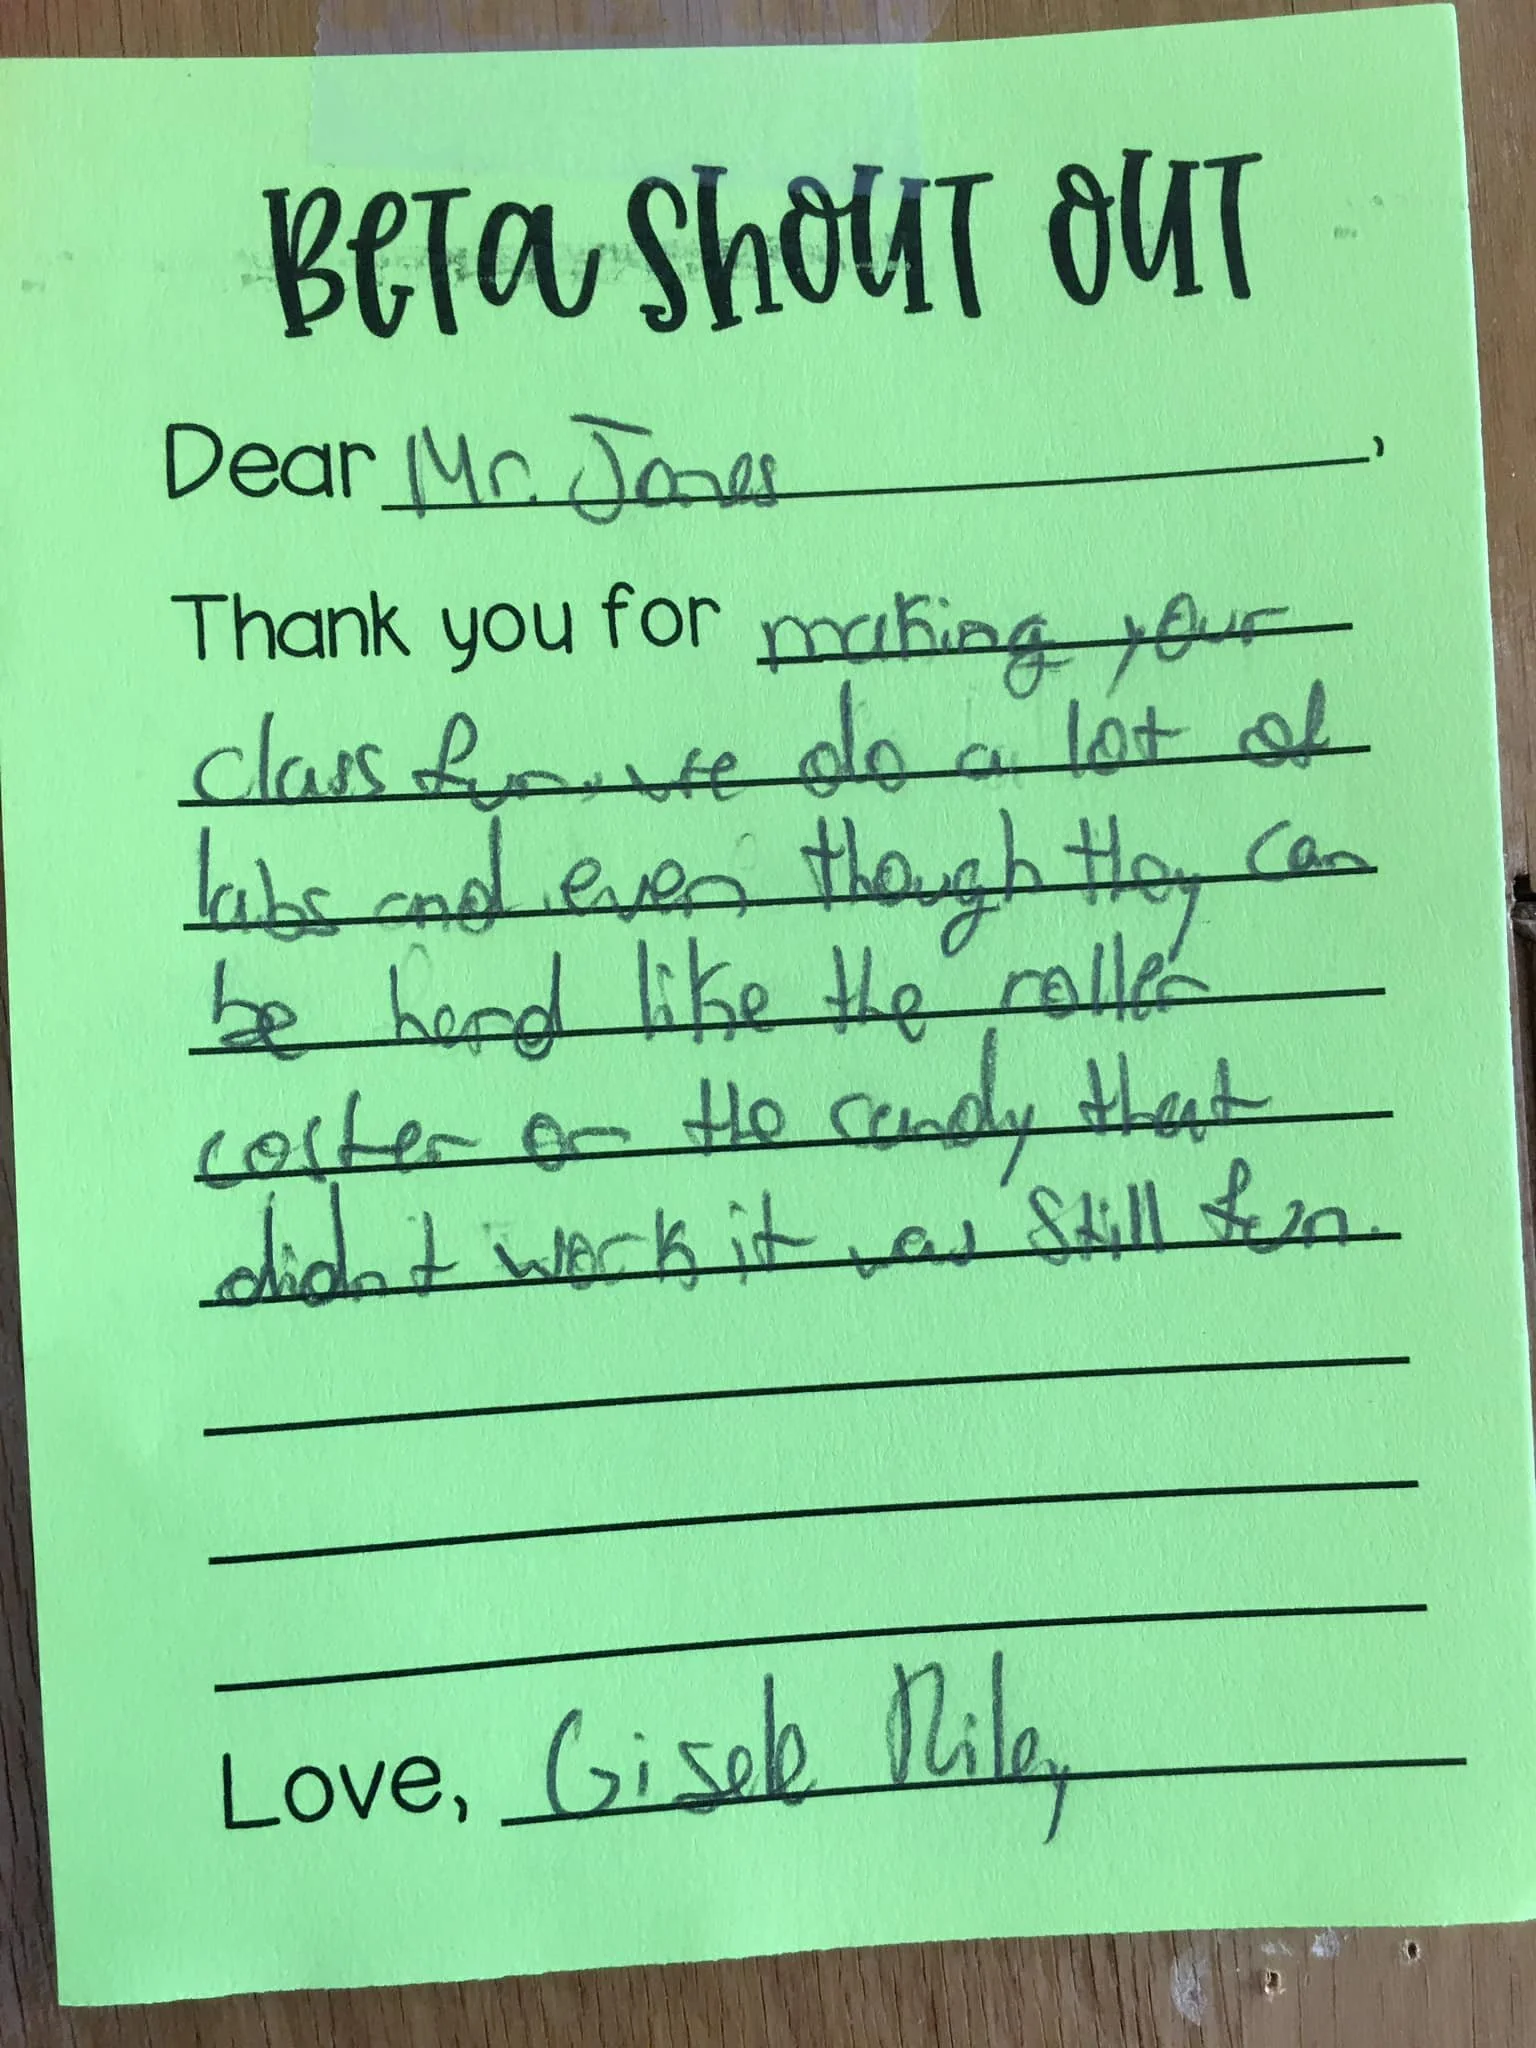 Beta Shout Out
Dear Mr. Jones,
Thank you for making your
class fun, we do a lot of
labs and even though they can
be hard like the roller
coster or the candy that
didn't work it was still fun.
Love, Gisele Riley